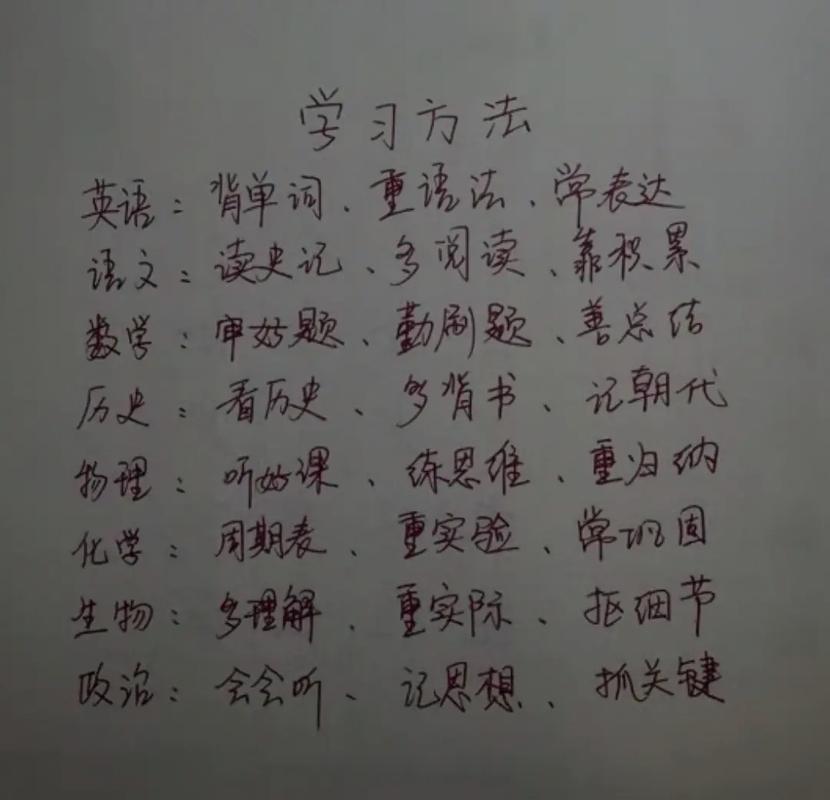 学习方法
英语：背单词、重语法、常表达
语文：读史记、多阅读、靠积累
数学：审好题、勤刷题、善总结
历史：看历史、多背书、记朝代
物理：听好课、练思维、重归纳
化学：周期表、重实验、常巩固
生物：多理解、重实际、抠细节
政治：会会听、记思想、抓关键